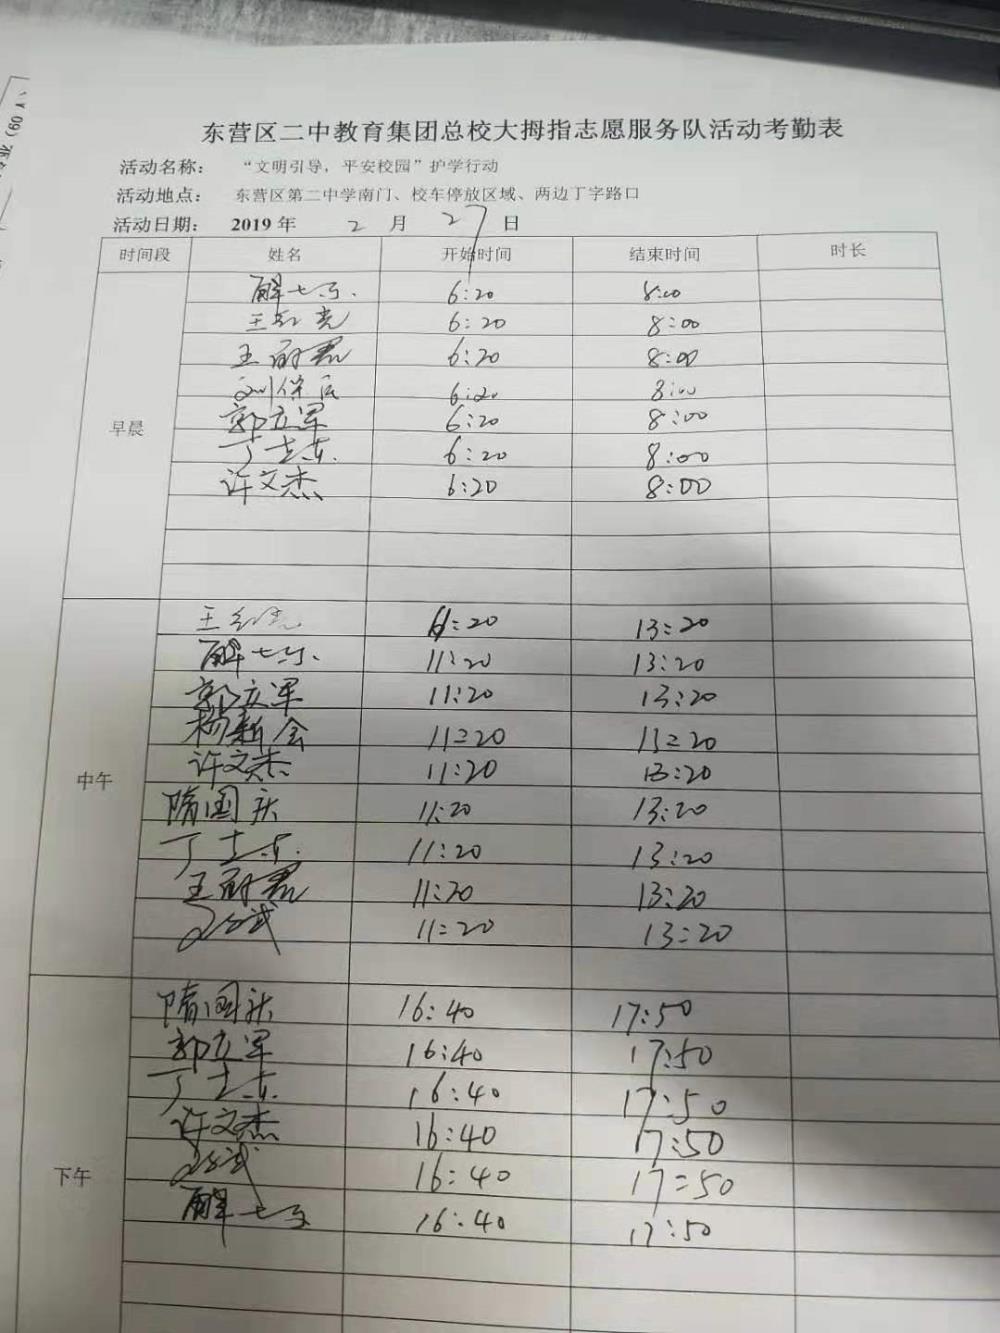 东营区二中教育集团总校大拇指志愿服务队活动考勤表
活动名称： “文明引导，平安校园”护学行动
活动地点： 东营区第二中学南门、校车停放区域、两边丁字路口
活动日期： 2019 年 2 月 27 日
时间段 姓名 开始时间 结束时间 时长
6:20 8:00
王 6:20 8:00
王 6:20 8:00
刘保 6:20 8:00
早晨 郭立军 6:20 8:00
丁志东 6:20 8:00
许文杰 6:20 8:00
王 11:20 13:20
11:20 13:20
郭立军 11:20 13:20
杨新会 11:20 13:20
中午 许文杰 11:20 13:20
隋国庆 11:20 13:20
丁志东 11:20 13:20
王 11:20 13:20
11:20 13:20
隋国庆 16:40 17:50
郭立军 16:40 17:50
丁志东 16:40 17:50
许文杰 16:40 17:50
下午 16:40 17:50
16:40 17:50